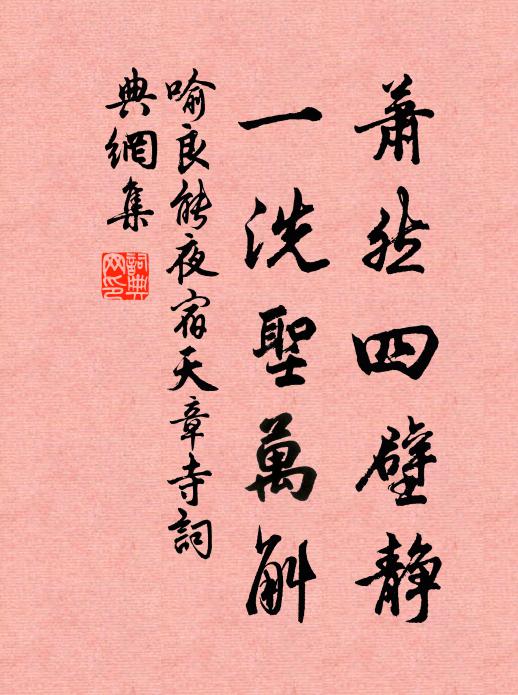 蕭然四壁静
一洗聖萬斛
喻良能夜宿天章寺詞
典網集
詞典網印